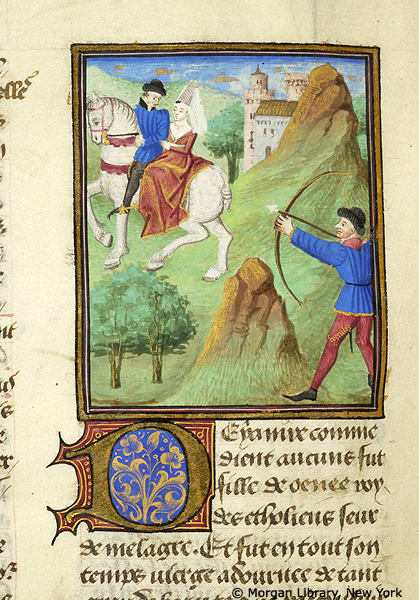 Deyanire comme
dient aucuns fut
fille de oenes roy
des etholiens seur
de melagre. Et fut en tout son
temps vierge adournee de tant
© Morgan Library, New York